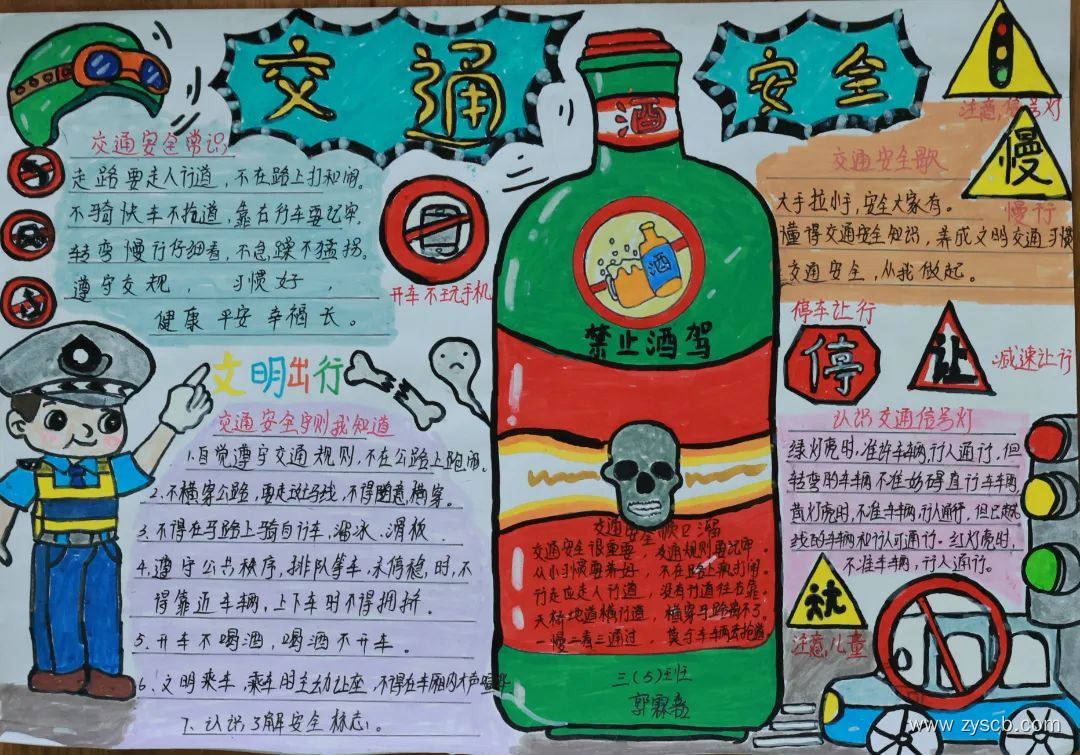 交通
安全
酒
交通安全常识
走路要走人行道，不在路上打和闹。
不骑快车不抢道，靠右行车要记牢。
转弯慢行仔细看，不急躁不猛拐。
遵守交规，习惯好，
健康平安幸福长。
开车不玩手机
文明出行
交通安全守则我知道
1.自觉遵守交通规则，不在公路上跑闹。
2.不横穿公路，要走斑马线，不得随意横穿。
3.不得在马路上骑自行车，溜冰、滑板.
4.遵守公共秩序，排队等车，未停稳，时，不
得靠近车辆，上下车时不得拥挤.
5.开车不喝酒，喝酒不开车.
6.文明乘车，乘车时主动让座，不得在车厢内大声喧哗
7、认识了解安全标志。
酒
禁止酒驾
交通安全顺口溜
交通安全很重要，交通规则要记牢。
从小习惯要养好，不在路上打闹。
行走应走人行道，没有行道往右靠。
天桥地道横行道，横穿马路
一慢二看三通过，莫与车辆去抢道
三(5)班
郭霖
注意信号灯
慢
慢行
交通安全歌
大手拉小手，安全大家有。
懂得交通安全知识，养成文明交通习惯
交通安全，从我做起。
停车让行
停
让
减速让行
认识交通信号灯
绿灯亮时，准许车辆，行人通行，但
转弯的车辆不准妨碍直行车辆
黄灯亮时，不准车辆，行人通行，但已越
线的车辆和行人可通行。红灯亮时，
不准车辆，行人通行。
注意儿童
www.zyscb.com